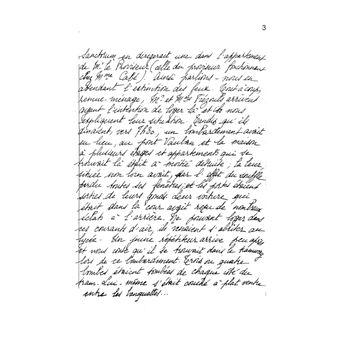 3
sanctorum, on dirigerait une dans l'appartement
de Mr le Proviseur (celle du proviseur
chez Mme Café). Ainsi parlions-nous en
attendant l'extinction des feux. Tout à coup,
remue-ménage, Mr et Mme arrivent
ayant l'intention de loger là et ils nous
expliquent leur situation. Tandis qu'ils
dînaient, vers 7h30, un bombardement avait
eu lieu, au pont Vauban et la maison
à plusieurs étages et appartements qui se
trouvait là était à moitié détruite ; la leur
située non loin avait, par l'effet du souffle
perdu toutes ses fenêtres, et les portes étaient
sorties de leurs gonds. Leur voiture, qui
était dans la cour avait reçu de nombreux
éclats à l'arrière. Ne pouvant loger dans
ces courants d'air, ils venaient s'abriter au
lycée. Un jeune répétiteur arrive peu après
et nous conte qu'il se trouvait dans le tramway
lors de ce bombardement. Trois ou quatre
bombes étaient tombées de chaque côté du
tram. Lui-même s'était couché à plat ventre
entre les banquettes...